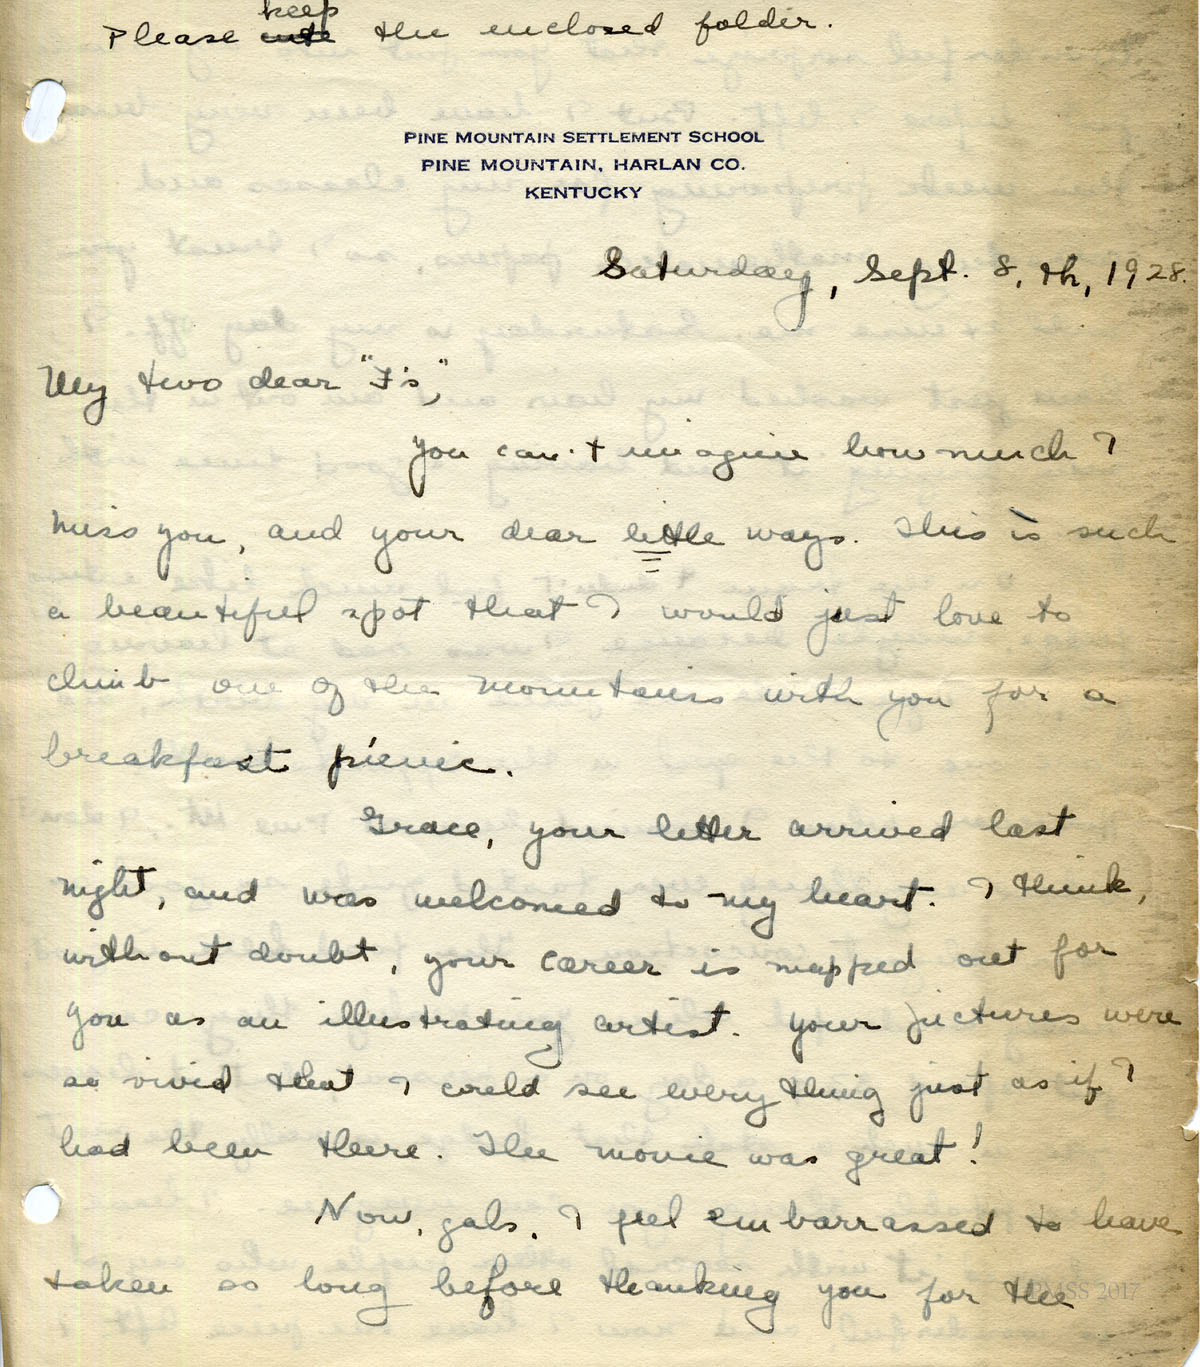 keep
Please the enclosed folder.
PINE MOUNTAIN SETTLEMENT SCHOOL
PINE MOUNTAIN, HARLAN CO.
KENTUCKY
Saturday, Sept. 8, th, 1928.
My two dear "F's,"
You can't imagine how much I
miss you, and your dear little ways. This is such
a beautiful spot that I would just love to
climb one of the mountains with you for a
breakfast picnic.
Grace, your letter arrived last
night, and was welcomed to my heart. I think,
without doubt, your career is mapped out for
you as an illustrating artist. Your pictures were
so vivid that I could see everything just as if I
had been there. The movie was great!
Now, gals, I feel embarrassed to have
taken so long before thanking you for the
PMSS 2017